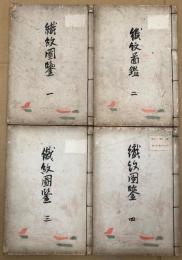 織紋圖鑒 一
織紋圖鑑 二
織紋圖鑒 三
織紋圖鑒 四